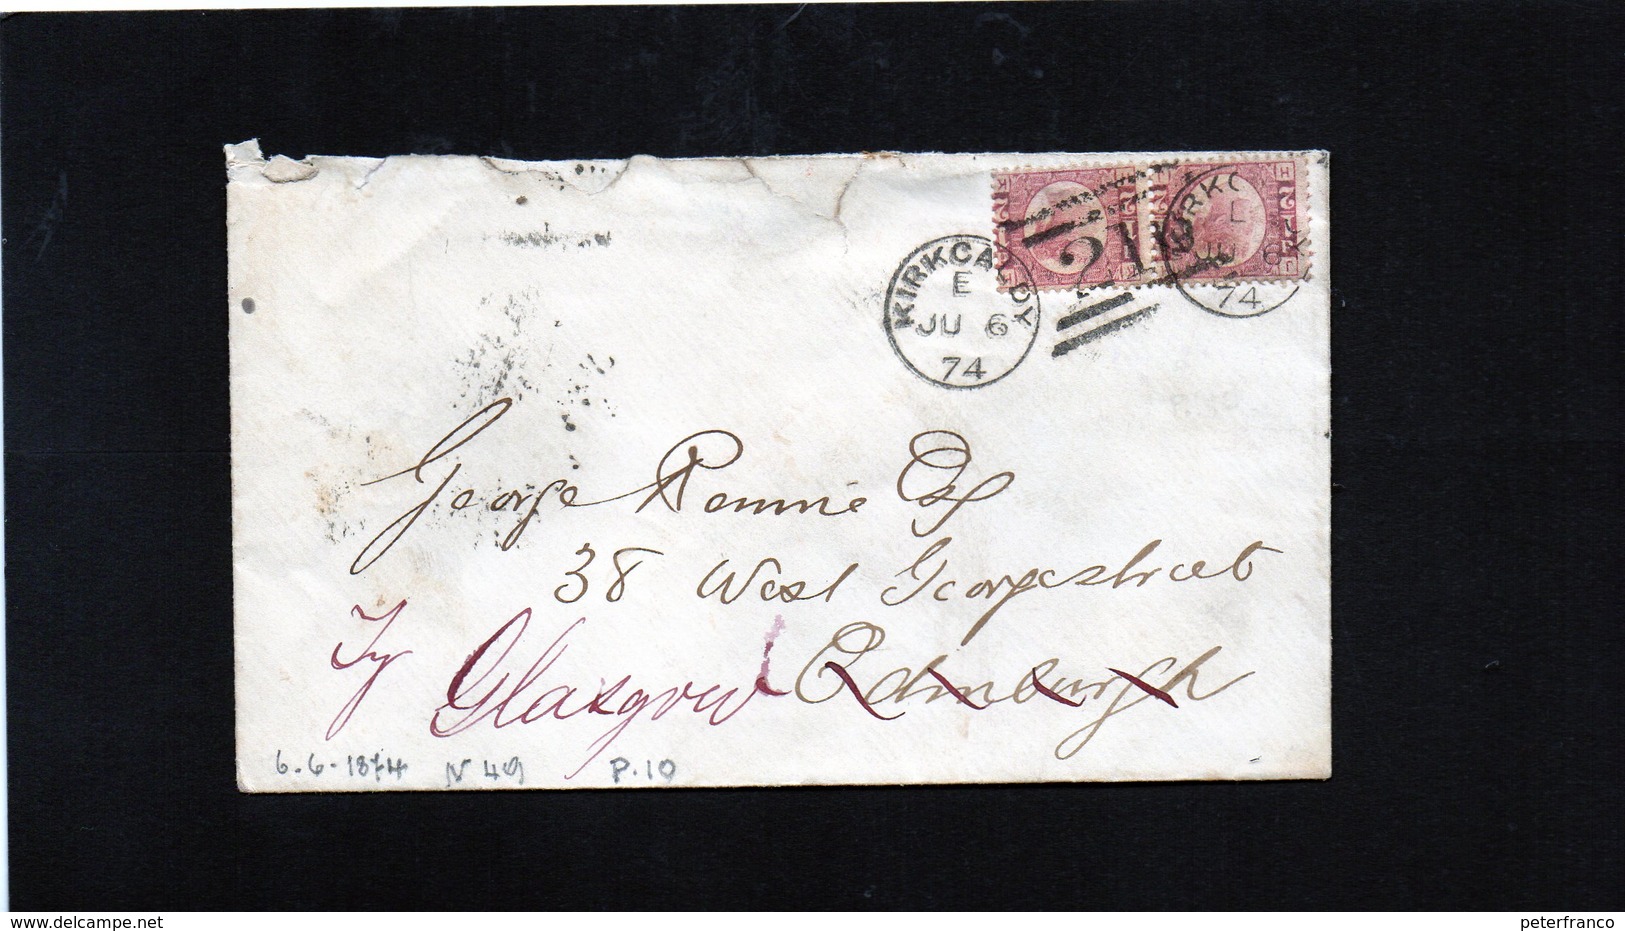 KIRKCALDY
E
JU 6
74
21
KIRKC
E
JU 6
74
George Rennie Esq
38 West Georgestreet
Edinburgh
Ty Glasgow
6.6.1874 N 49 P.10
delcampe.net
peterfranco